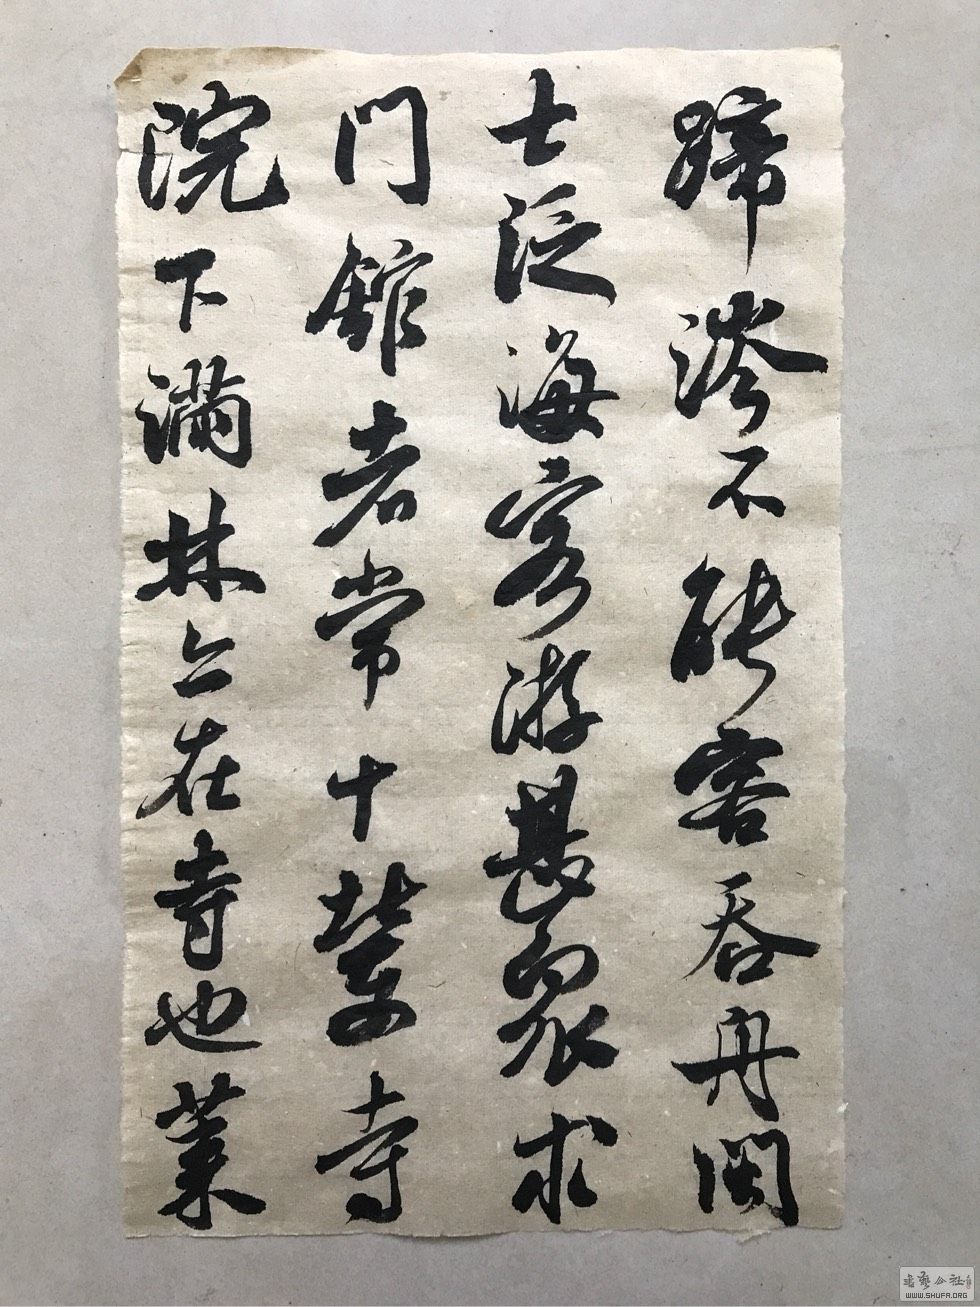 蹄涔不能容吞舟閩
士泛海客游甚衆求
門館者常十輩寺
院下滿林亦在寺也萊
書藝公社
WWW.SHUFA.ORG